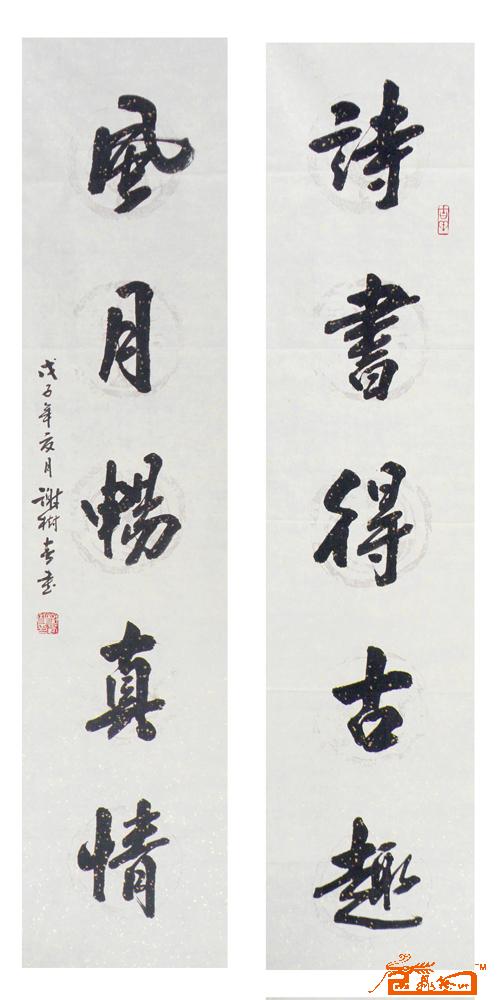 詩書得古趣
風月暢真情
戊子年夏月謝樹春書
TM